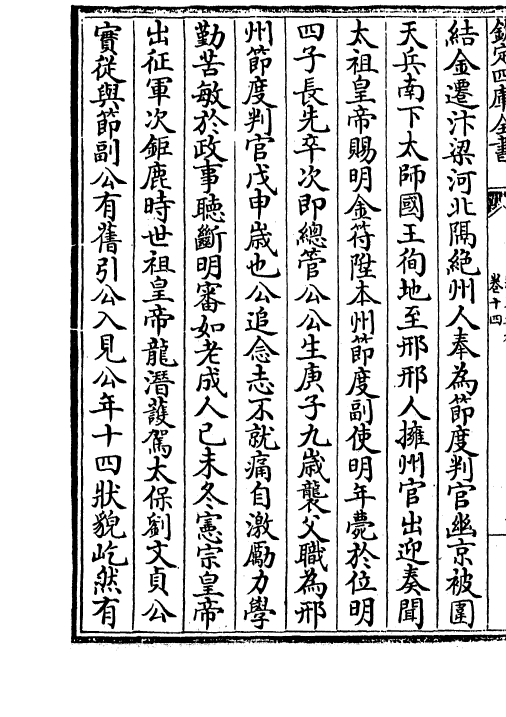 欽定四庫全書
卷十四
結金遷汴梁河北隔絶州人奉為節度判官幽京被圍
天兵南下太師國王徇地至邢邢人擁州官出迎奏聞
太祖皇帝賜明金符陞本州節度副使明年薨於位明
四子長先卒次即總管公公生庚子九歲襲父職為邢
州節度判官戊申歲也公追念志不就痛自激勵力學
勤苦敏於政事聽斷明審如老成人己未冬憲宗皇帝
出征軍次鉅鹿時世祖皇帝龍潛䕶駕太保劉文貞公
實從與節副公有舊引公入見公年十四狀貌屹然有